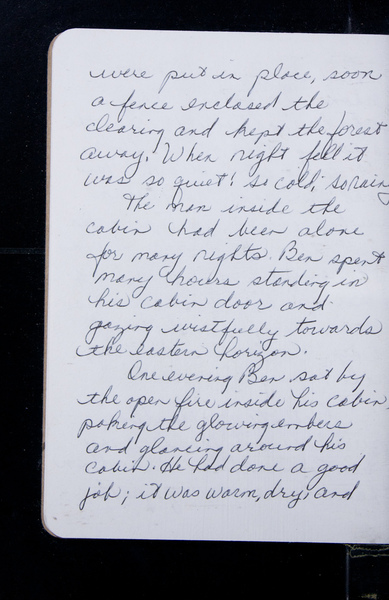 were put in place, soon
a fence enclosed the
clearing and kept the forest
away. When night fell it
was so quiet! so cold; so rainy
The man inside the
cabin had been alone
for many nights. Ben spent
many hours standing in
his cabin door and
gazing wistfully towards
the eastern horizon.
One evening Ben sat by
the open fire inside his cabin,
poking the glowing embers
and glancing around his
cabin. He had done a good
job; it was warm, dry, and